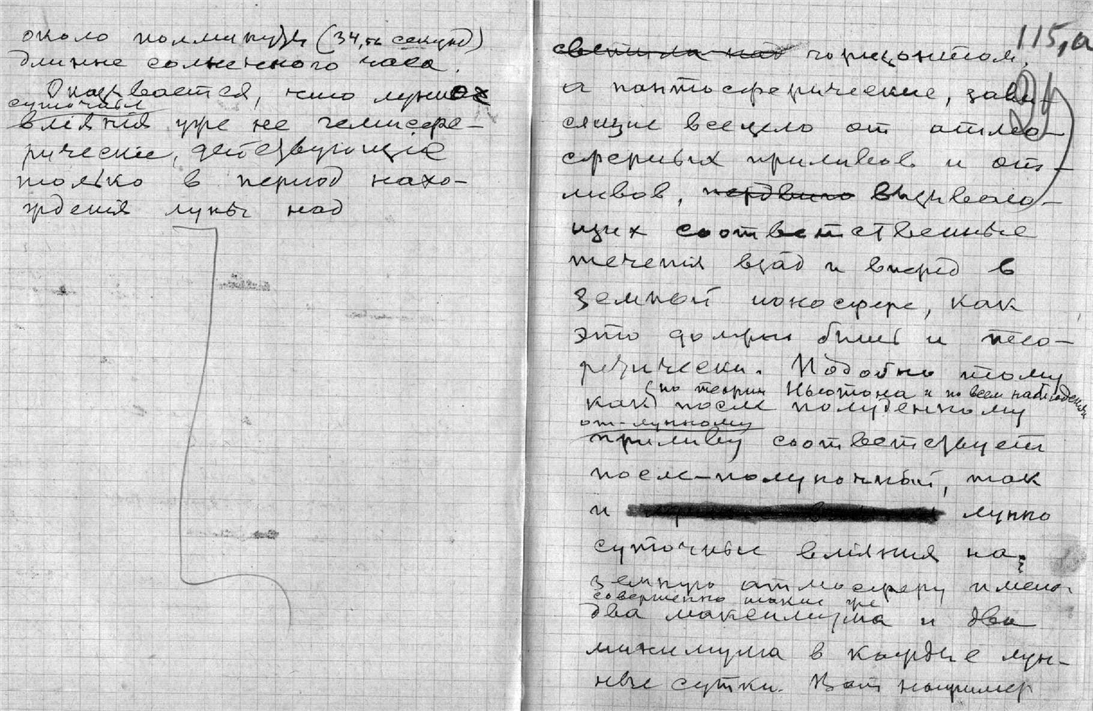 около полминуты (34,56 секунд)
длинне солнечного часа.
Оказывается, что лунно
суточныя
влiянiя уже не гемисфе-
рические, действующiе
только в период нахо-
жденiя луны над
115,а
светила над горизонтом,
а пантосферические, зави-
сящие всецело от атмо-
сферных приливов и от-
ливов, вызываю-
щих соответственные
теченiя взад и вперед в
земной ионосфере, как
это должно быть и тео-
ретически. Подобно тому
(по теории Ньютона и по всем наблюдениям
как после полуденному
от-лунному
приливу соответствует
после-полуночный, так
и лунно
суточные влiяния на
земную атмосферу имею
совершенно такие же
два максимума и два
минимума в каждые лун-
ные сутки. Вот например